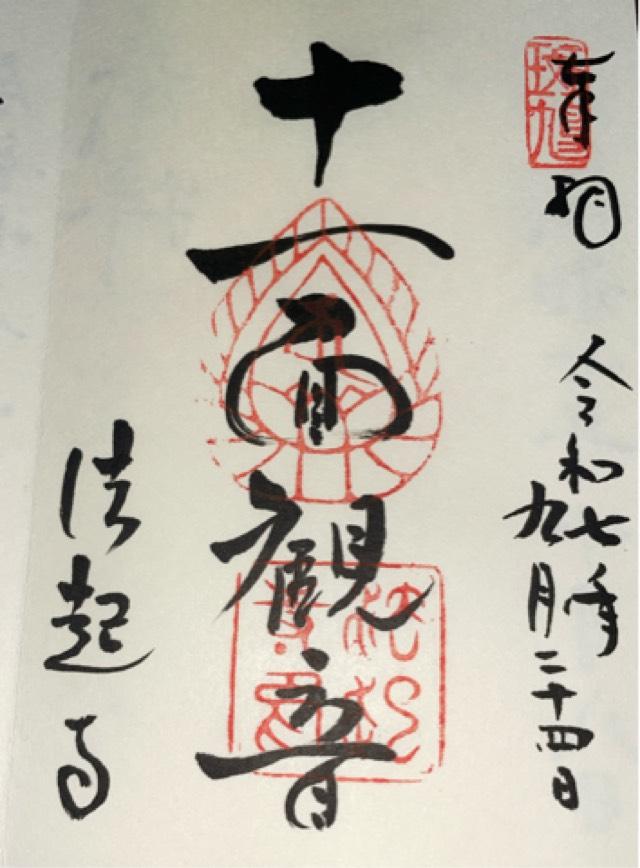 奉拝
令和七年
九月二十四日
十一面観音
法起寺